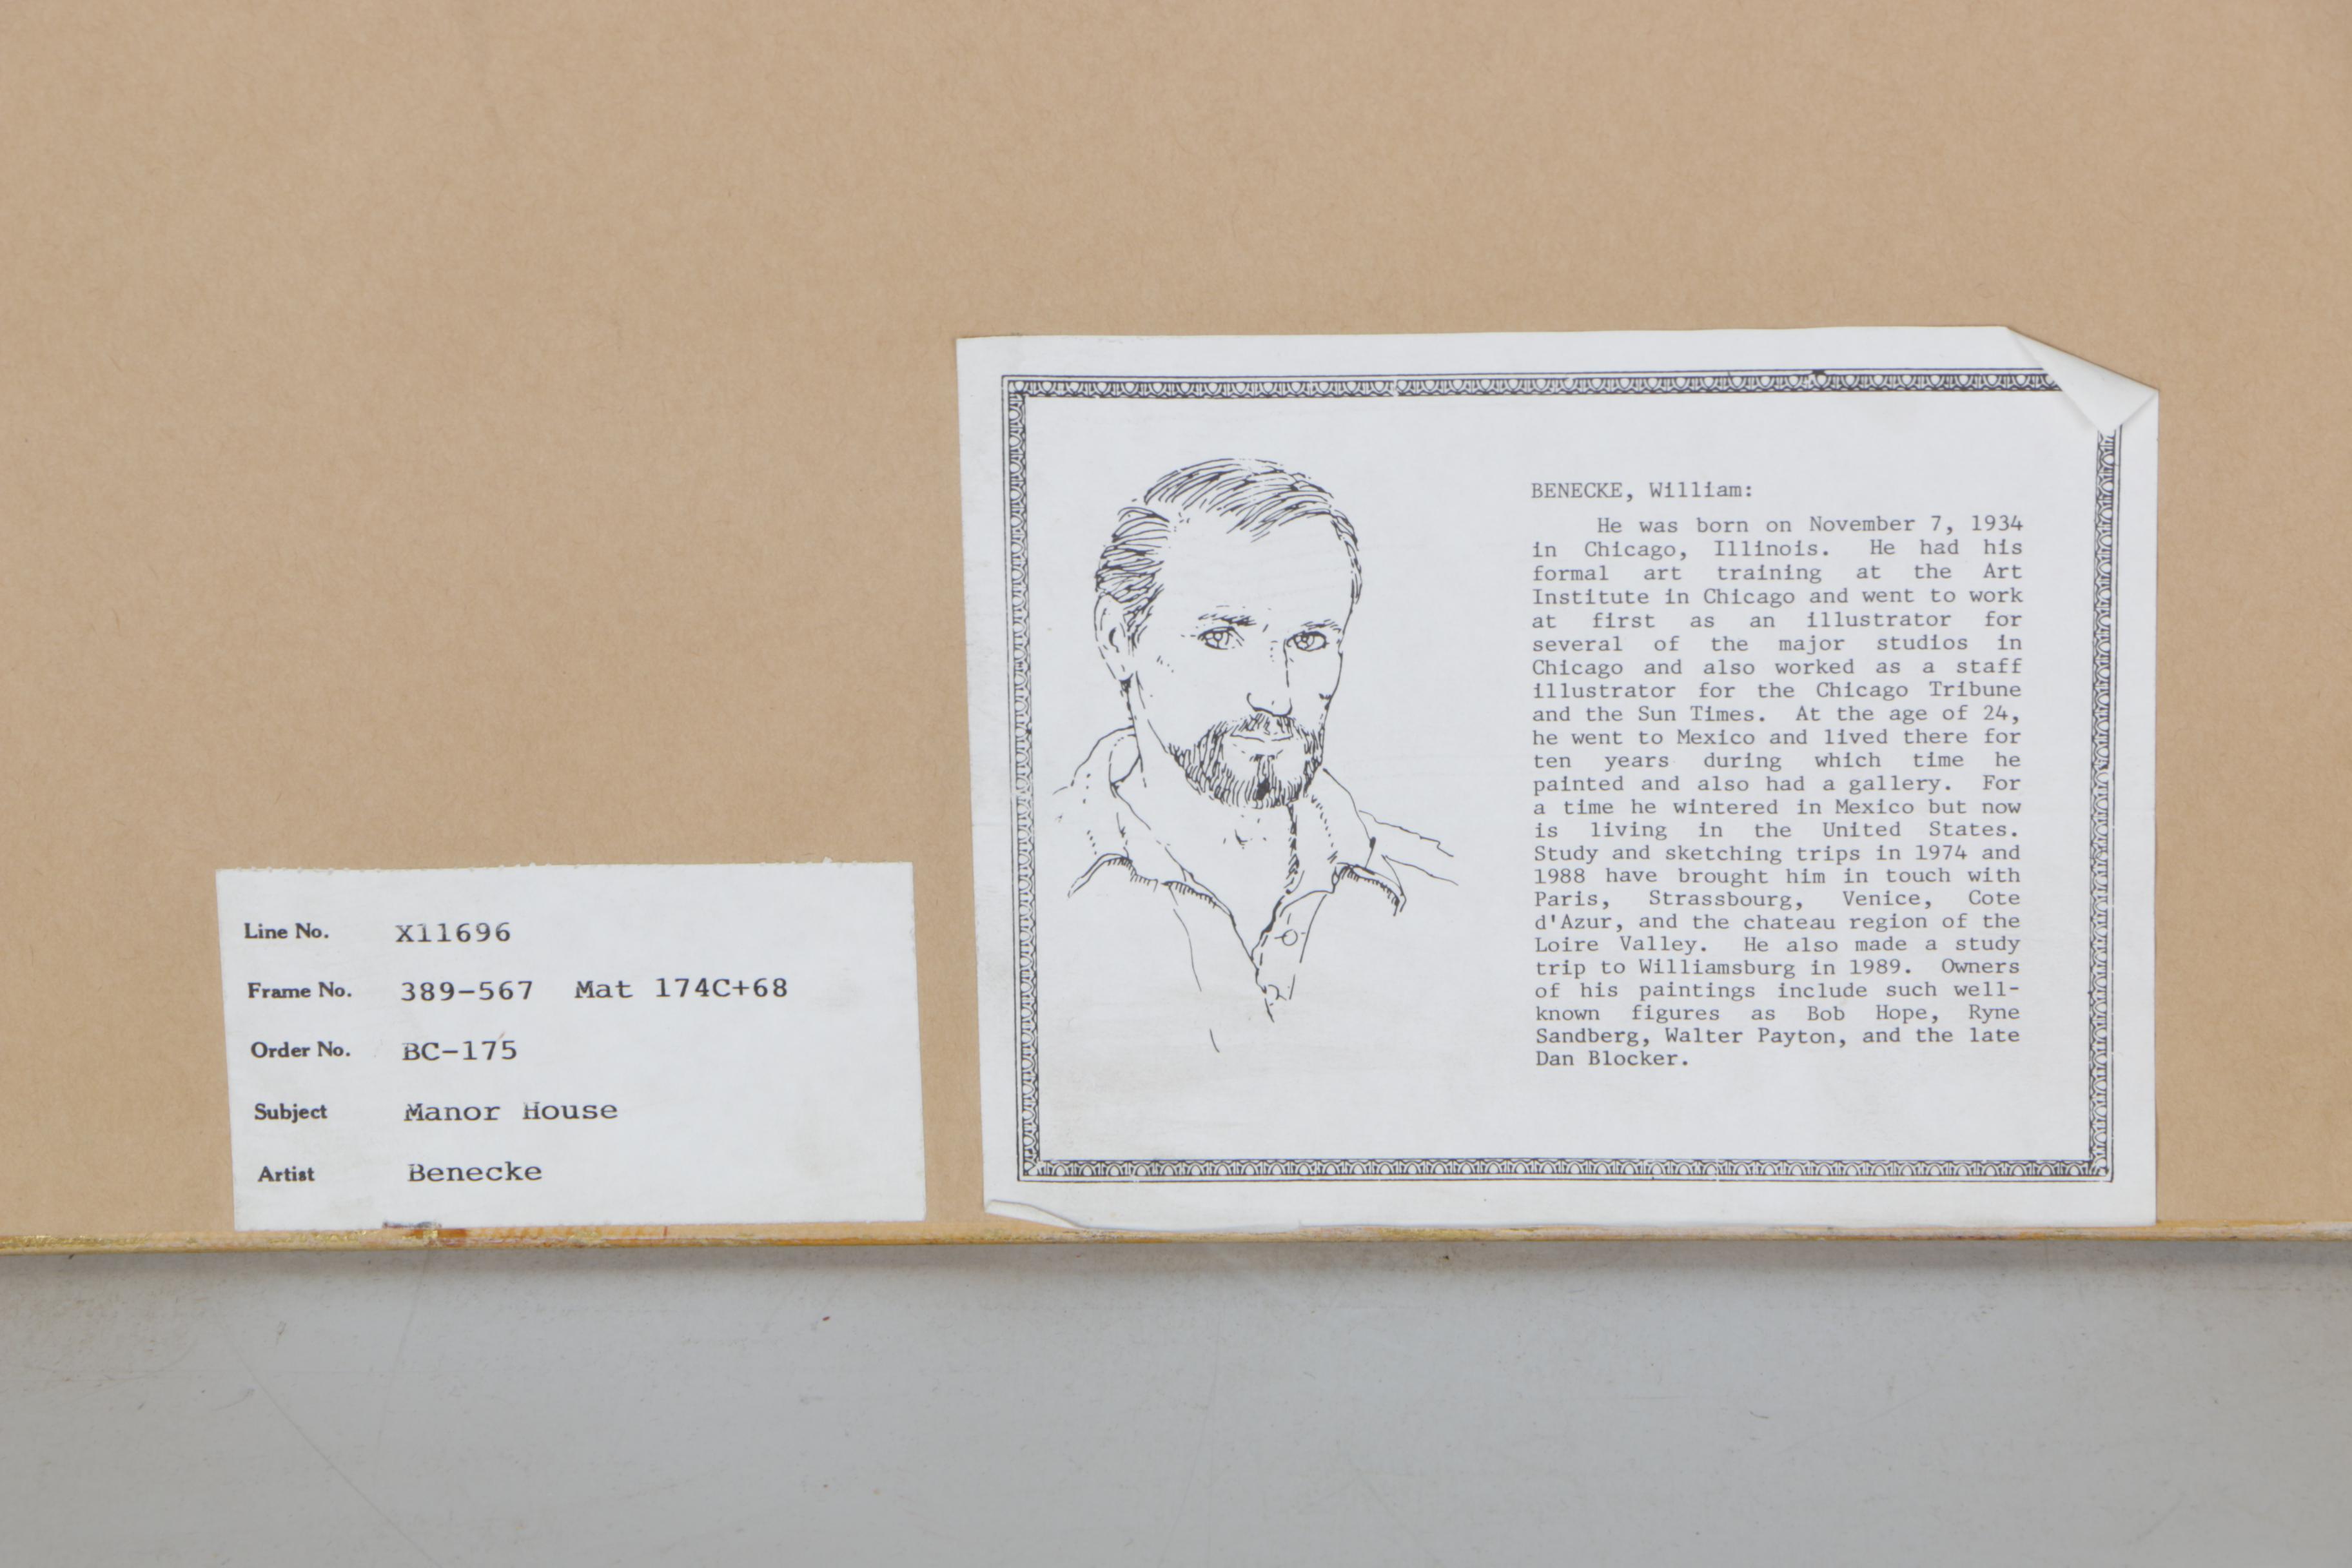 Line No. X11696
Frame No. 389-567 Mat 174C+68
Order No. BC-175
Subject Manor House
Artist Benecke
BENECKE, William:
He was born on November 7, 1934
in Chicago, Illinois. He had his
formal art training at the Art
Institute in Chicago and went to work
at first as an illustrator for
several of the major studios in
Chicago and also worked as a staff
illustrator for the Chicago Tribune
and the Sun Times. At the age of 24,
he went to Mexico and lived there for
ten years during which time he
painted and also had a gallery. For
a time he wintered in Mexico but now
is living in the United States.
Study and sketching trips in 1974 and
1988 have brought him in touch with
Paris, Strassbourg, Venice, Cote
d'Azur, and the chateau region of the
Loire Valley. He also made a study
trip to Williamsburg in 1989. Owners
of his paintings include such well-
known figures as Bob Hope, Ryne
Sandberg, Walter Payton, and the late
Dan Blocker.